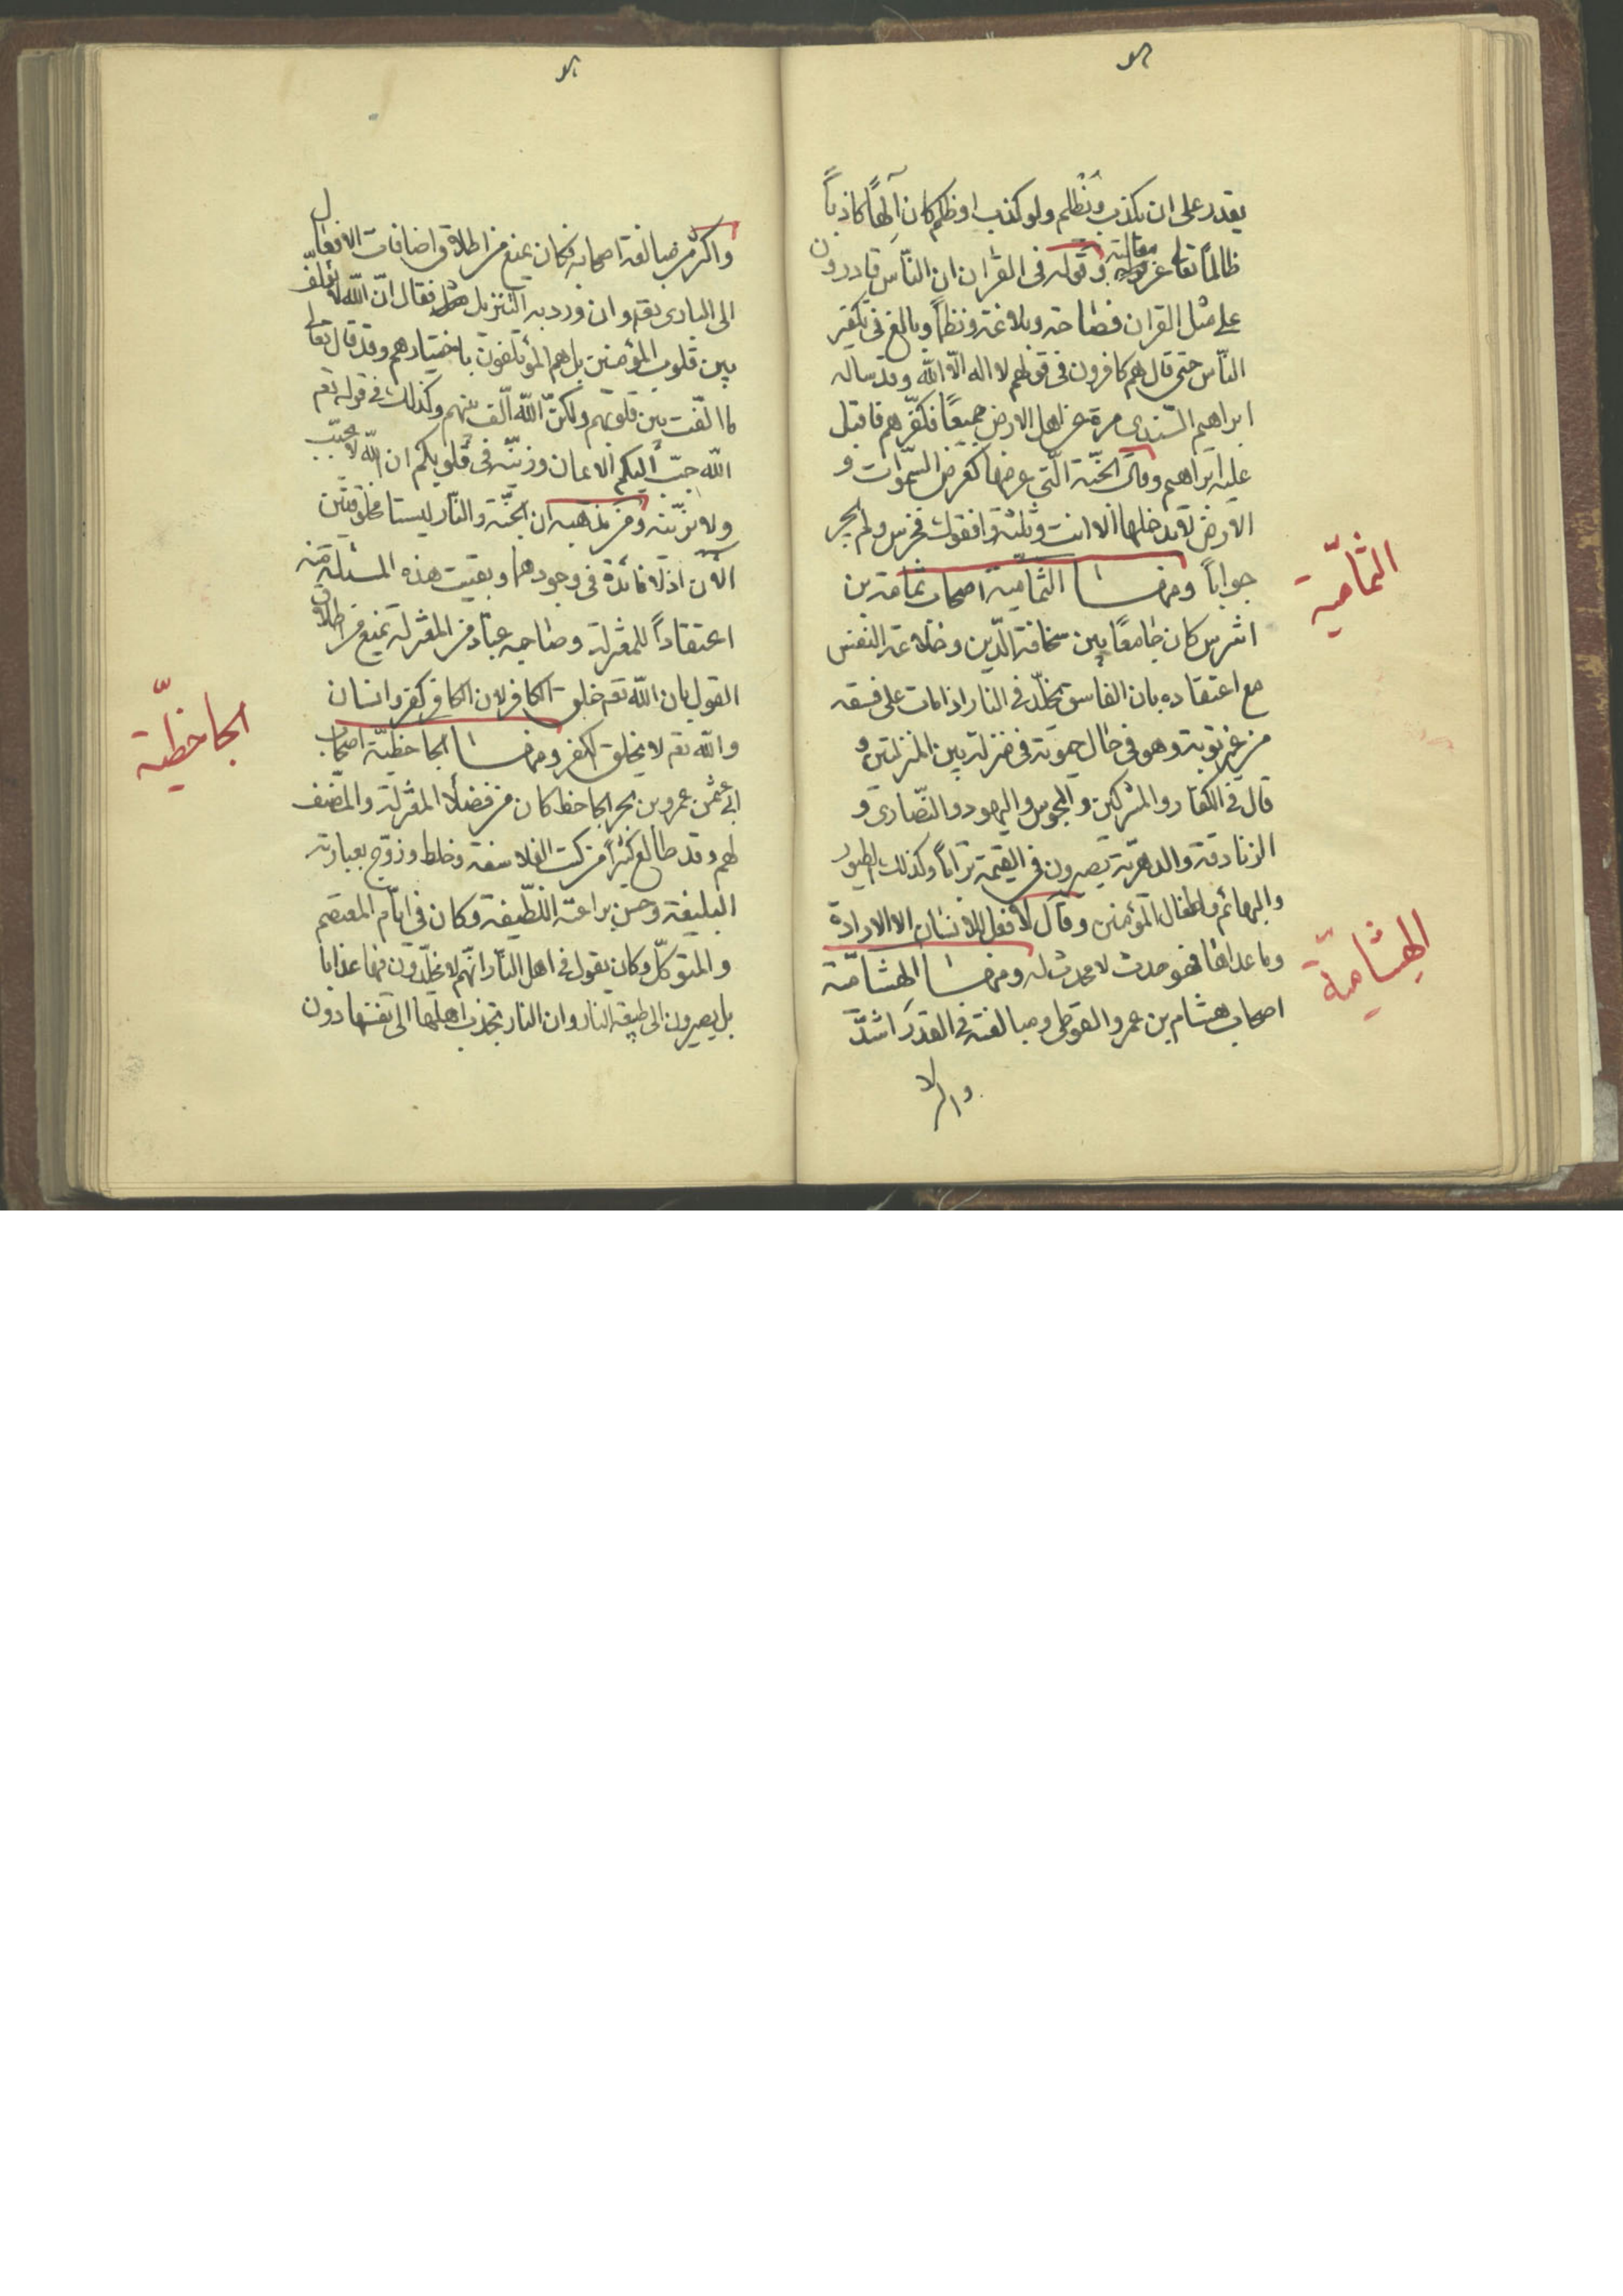 يقدر على ان يكذب ويظلم ولو كذب او ظلم كان آلهاً كاذباً
ظالماً تعالى عن مقالته وقوله فى القران ان الناس قادرون
على مثل القران فصاحة وبلاغة ونظماً وبالغ فى تكفير
الناس حتى قال هم كافرون فى قولهم لا اله الا الله وقد ساله
ابراهيم السندى مرة عن اهل الارض جميعاً فكفرهم فاقبل
عليه ابراهيم وقال الجنة التى عرضها كعرض السموات و
الارض لا يدخلها الا انت وثلثة وافقوك فخزى ولم يحر
جواباً ومنها الثمامية اصحاب ثمامة بن
اشرس كان جامعاً بين سخافة الدين وخلاعة النفس
مع اعتقاده بان الفاسق يخلد فى النار اذا مات على فسقه
من غير توبة وهو فى حال حيوته فى منزلة بين المنزلتين و
قال فى الكفار والمشركين والمجوس واليهود والنصارى و
الزنادقة والدهرية يصيرون فى القيمة تراباً وكذلك الطيور
والبهائم واطفال المؤمنين وقال لا فعل للانسان الا الارادة
وما عداها فهو حدث لا محدث له ومنها الهشامية
اصحاب هشام بن عمرو الفوطى ومبالغته فى القدر اشد
الثمامية
الهشامية
واكثر من مبالغة اصحابه فكان يمنع من اطلاق اضافات الافعال
الى البارى تعم وان ورد به التنزيل فقال ان الله لا يؤلف
بين قلوب المؤمنين بل هم المؤتلفون باختيارهم وقد قال تعالى
ما الفت بين قلوبهم ولكن الله الف بينهم وكذلك فى قوله تعم
الله حبب اليكم الايمان وزينه فى قلوبكم ان الله لا يحبب
ولا يزينه ومن مذهبه ان الجنة والنار ليستا مخلوقتين
الآن اذ لا فائدة فى وجودهما وبقيت هذه المسئلة منه
اعتقاداً للمعتزلة وصاحبه عباد من المعتزلة يمنع من اطلاق
القول بان الله تعم خلق الكافر لان الكافر كفر وانسان
والله تعم لا يخلق الكفر ومنها الجاحظية اصحاب
ابى عثمن عمرو بن بحر الجاحظ كان من فضلاء المعتزلة والمصنف
لهم وقد طالع كثيراً من كتب الفلاسفة وخلط وروج بعبارته
البليغة وحسن براعته اللطيفة وكان فى ايام المعتصم
والمتوكل وكان يقول فى اهل النار انهم لا يخلدون فيها عذابا
بل يصيرون الى طبيعة النار وان النار تجذب اهلها الى نفسها دون
الجاحظية